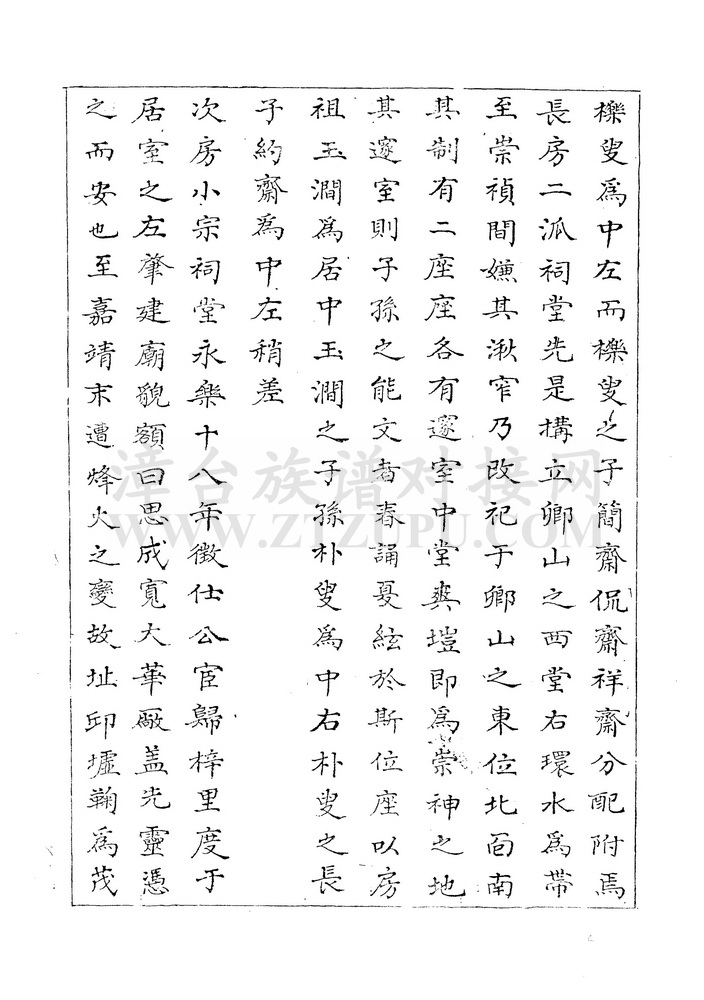 櫟叟爲中左而櫟叟之子簡齋侃齋祥齋分配附焉
長房二派祠堂先是搆立鄉山之西堂右環水爲帶
至崇禎間嫌其湫窄乃改祀于鄉山之東位北面南
其制有二座座各有邃室中堂爽塏即爲崇神之地
其邃室則子孫之能文者春誦夏絃於斯位座以房
祖玉澗爲居中玉澗之子孫朴叟爲中右朴叟之長
子約齋爲中左稍差
次房小宗祠堂永樂十八年徵仕公宦歸梓里度于
居室之左肇建廟貌額曰思成寬大華厰盖先靈憑
之而安也至嘉靖末遭烽火之變故址邱墟鞠爲茂
漳台族谱对接网
WWW.ZTZUPU.COM